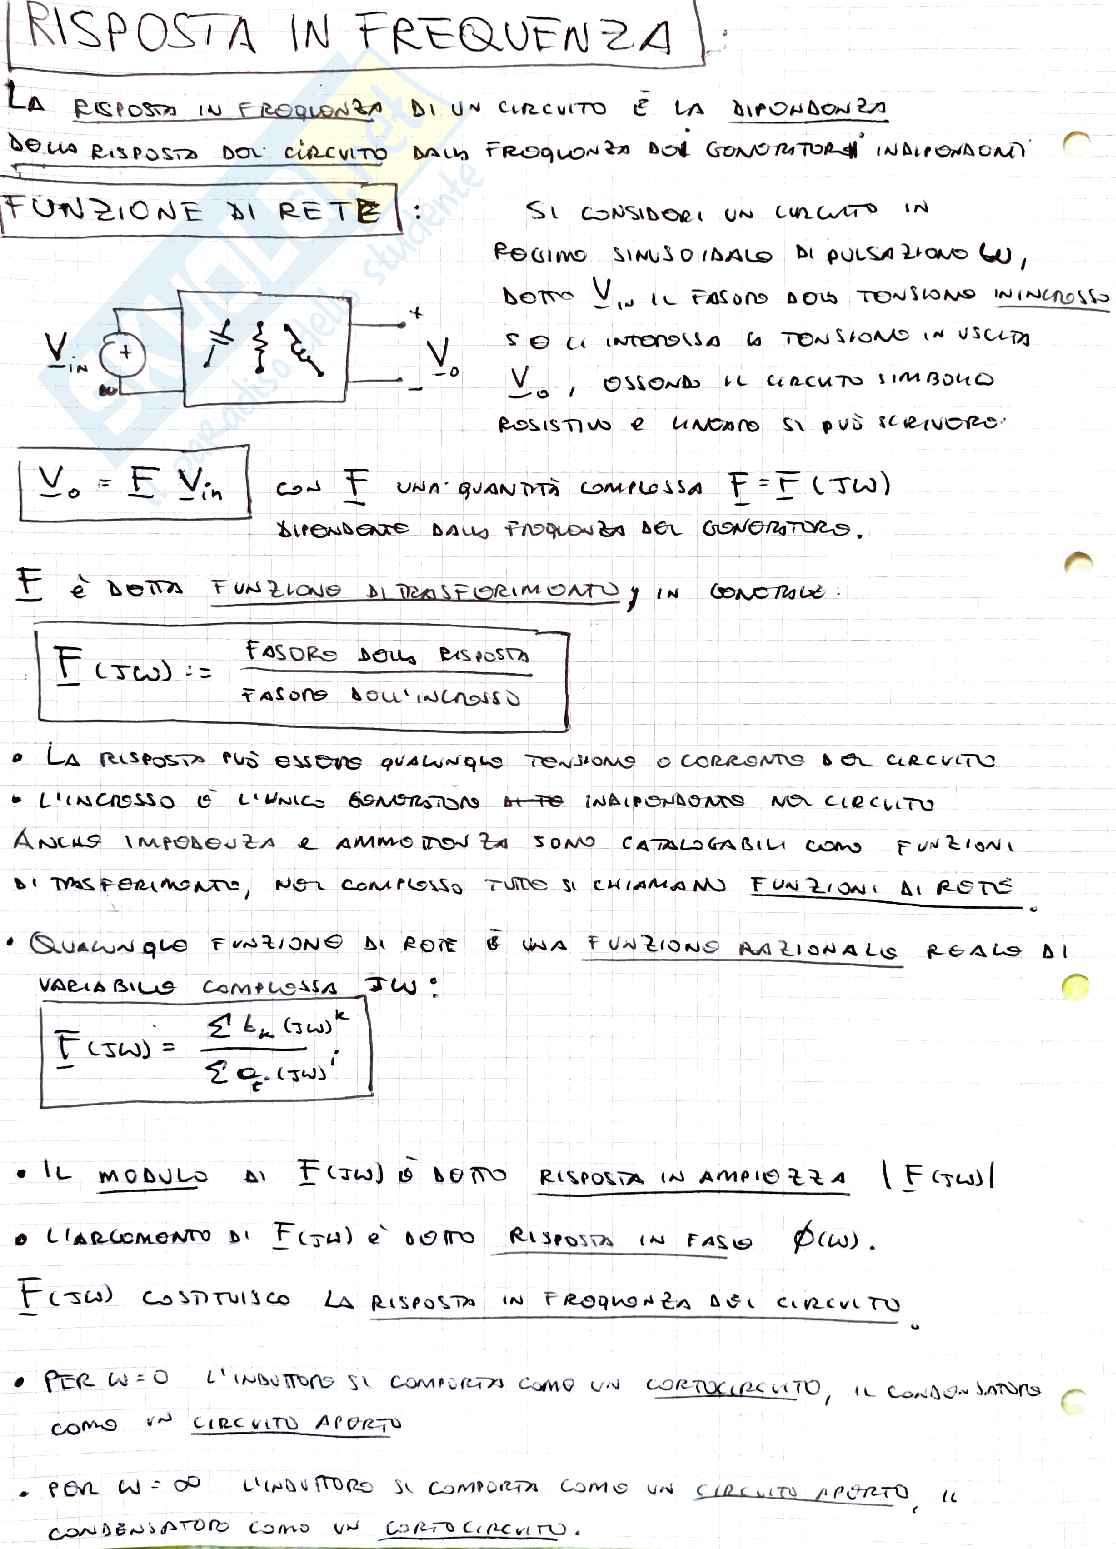 RISPOSTA IN FREQUENZA :
LA RISPOSTA IN FREQUENZA DI UN CIRCUITO È LA DIPENDENZA
DELLA RISPOSTA DEL CIRCUITO DALLA FREQUENZA DEI GENERATORI INDIPENDENTI
FUNZIONE DI RETE :
SI CONSIDERI UN CIRCUITO IN
REGIME SINUSOIDALE DI PULSAZIONE ω,
DETTO V_in IL FASORE DELLA TENSIONE IN INGRESSO
SE CI INTERESSA LA TENSIONE IN USCITA
V_o, ESSENDO IL CIRCUITO SIMBOLICO
RESISTIVO E LINEARE SI PUÒ SCRIVERE:
V_in + + - V_o
V_o = F V_in CON F UNA QUANTITÀ COMPLESSA F = F(Jω)
DIPENDENTE DALLA FREQUENZA DEL GENERATORE.
F È DETTA FUNZIONE DI TRASFERIMENTO, IN GENERALE:
F(Jω) := FASORE DELLA RISPOSTA / FASORE DELL'INGRESSO
• LA RISPOSTA PUÒ ESSERE QUALUNQUE TENSIONE O CORRENTE DEL CIRCUITO
• L'INGRESSO È L'UNICO GENERATORE DI TE INDIPENDENTE NEL CIRCUITO
ANCHE IMPEDENZA E AMMETTENZA SONO CATALOGABILI COME FUNZIONI
DI TRASFERIMENTO, NEL COMPLESSO TUTTE SI CHIAMANO FUNZIONI DI RETE.
• QUALUNQUE FUNZIONE DI RETE È UNA FUNZIONE RAZIONALE REALE DI
VARIABILE COMPLESSA Jω:
F(Jω) = Σ b_k (Jω)^k / Σ a_i (Jω)^i
• IL MODULO DI F(Jω) È DETTO RISPOSTA IN AMPIEZZA |F(Jω)|
• L'ARGOMENTO DI F(Jω) È DETTO RISPOSTA IN FASE φ(ω).
F(Jω) COSTITUISCE LA RISPOSTA IN FREQUENZA DEL CIRCUITO.
• PER ω=0 L'INDUTTORE SI COMPORTA COME UN CORTOCIRCUITO, IL CONDENSATORE
COME UN CIRCUITO APERTO
• PER ω=∞ L'INDUTTORE SI COMPORTA COME UN CIRCUITO APERTO, IL
CONDENSATORE COME UN CORTOCIRCUITO.
SKUOLA.net
il paradiso dello studente